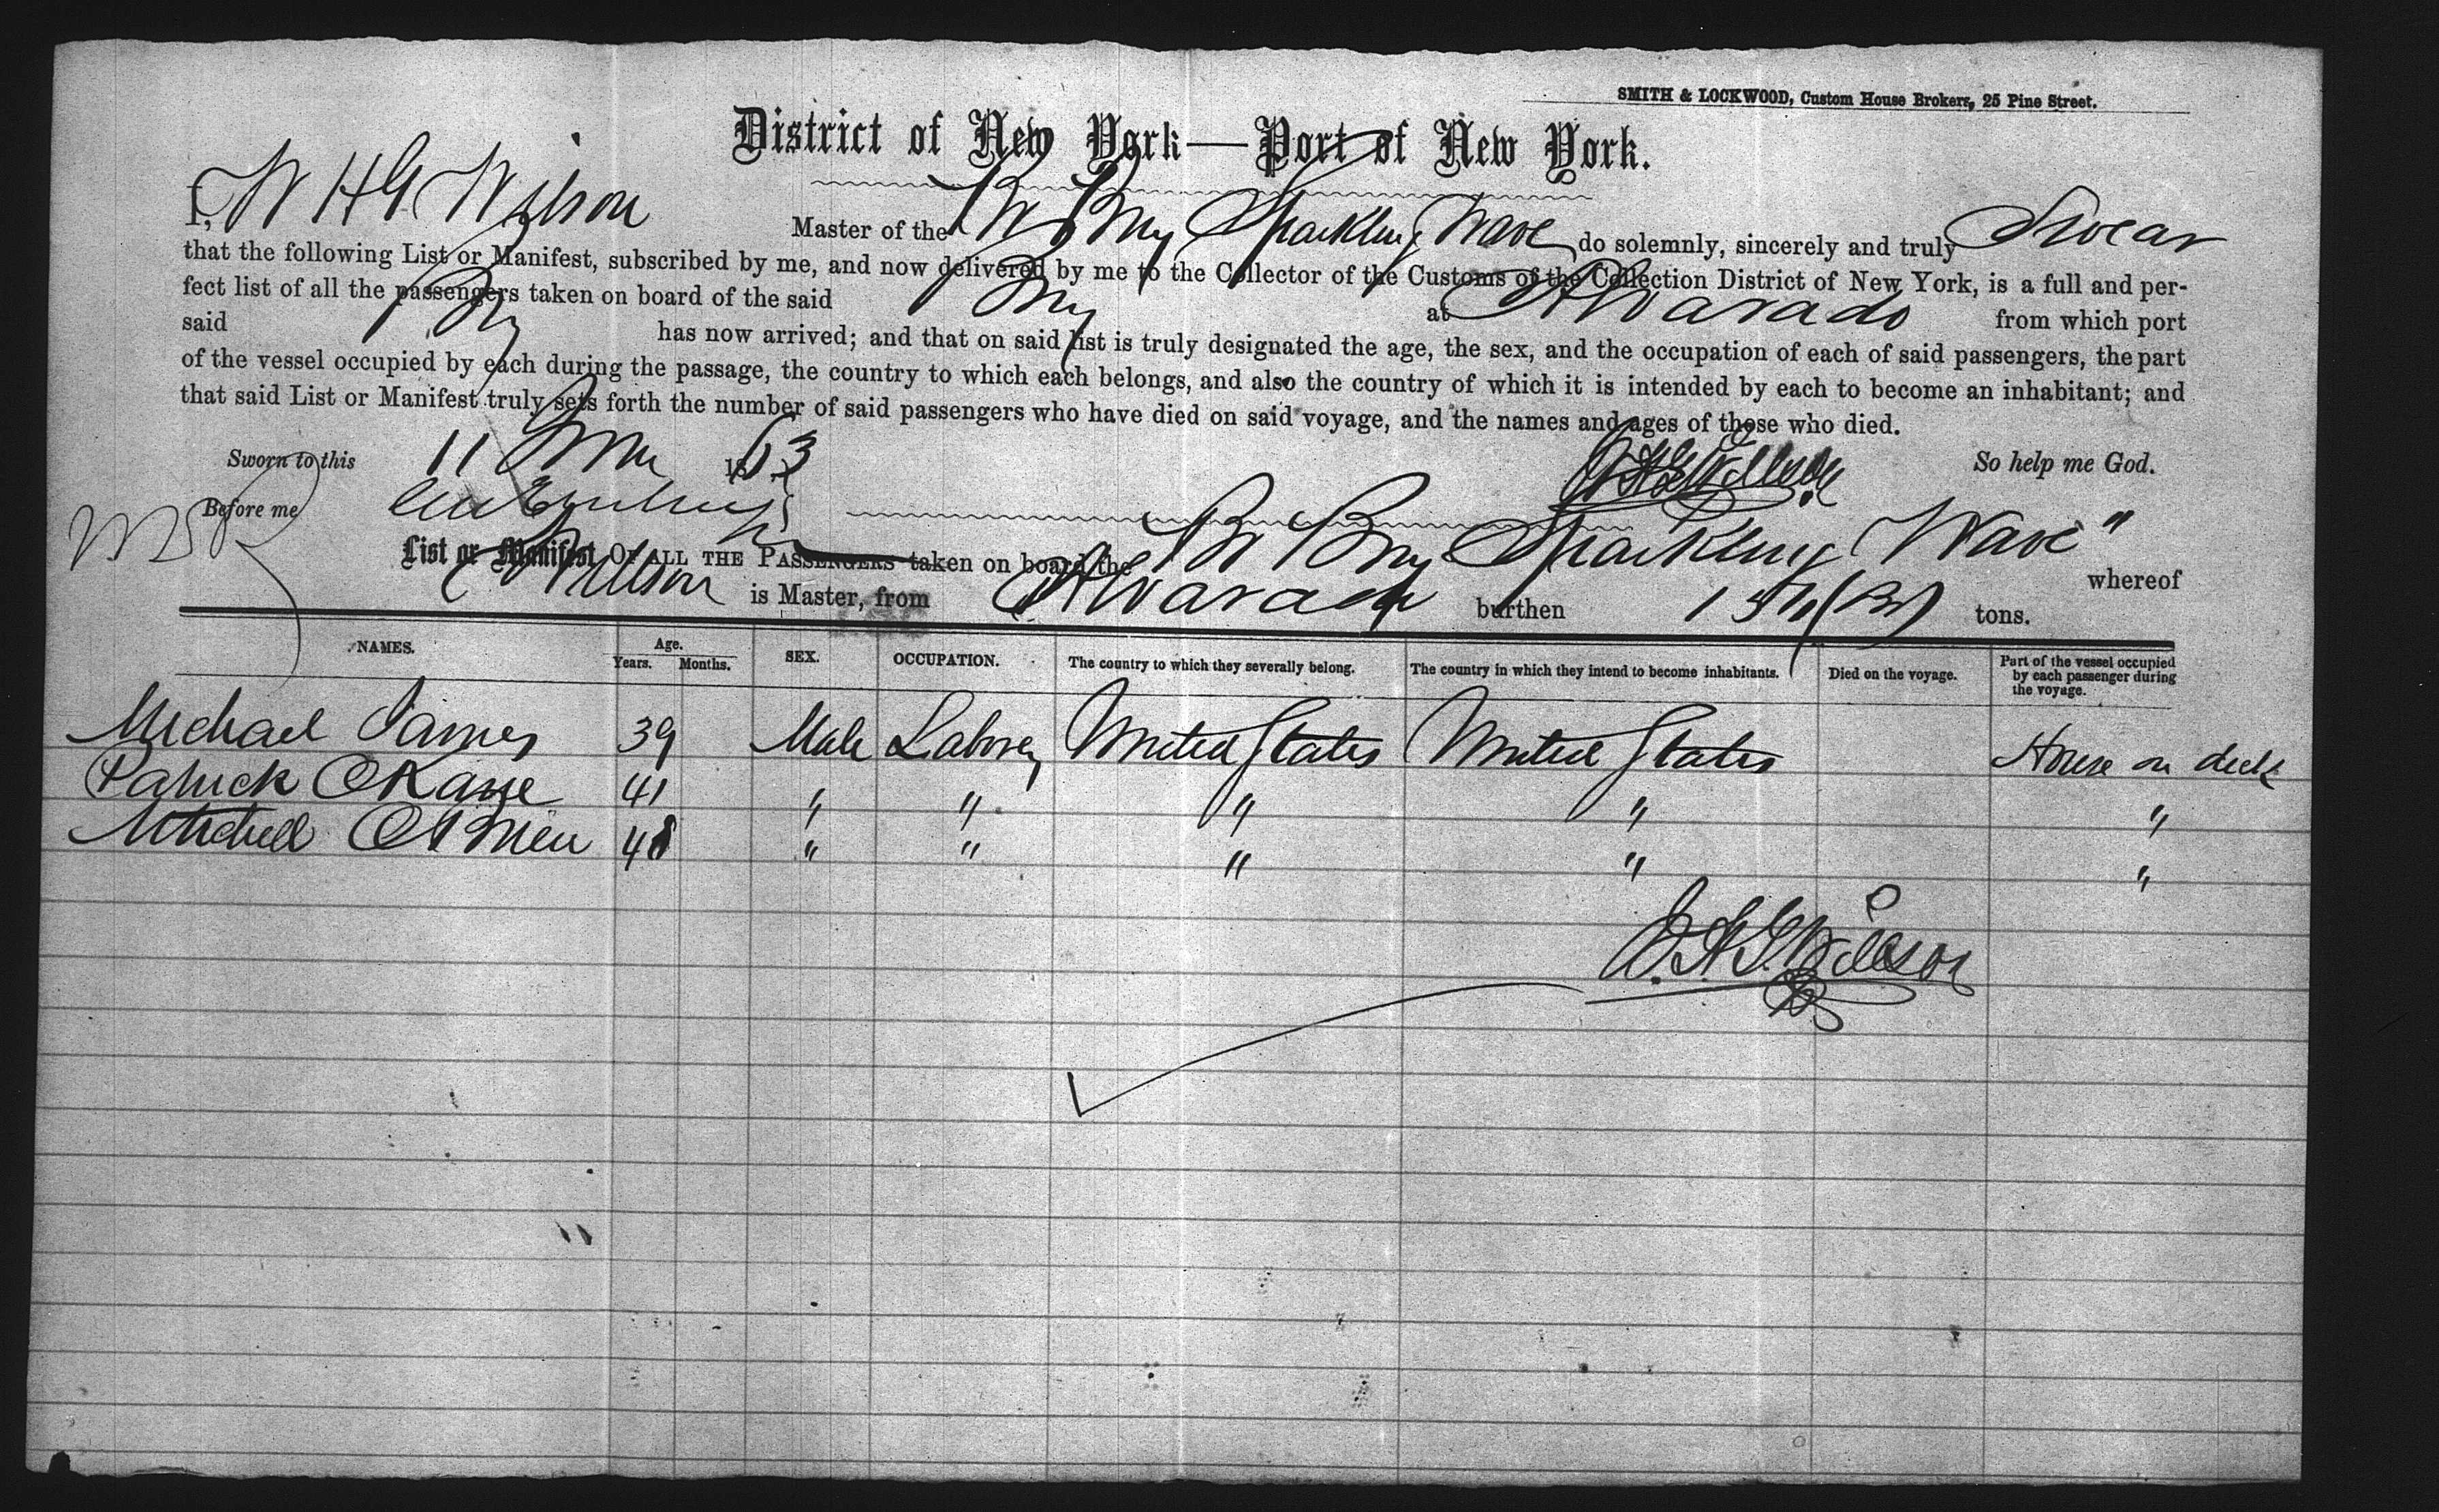 SMITH & LOCKWOOD, Custom House Brokers, 25 Pine Street.
District of New York—Port of New York.
I, W H G Wilson Master of the Br Brig Sparkling Wave do solemnly, sincerely and truly Swear
that the following List or Manifest, subscribed by me, and now delivered by me to the Collector of the Customs of the Collection District of New York, is a full and per-
fect list of all the passengers taken on board of the said Brig at Alvarado from which port
said Brig has now arrived; and that on said list is truly designated the age, the sex, and the occupation of each of said passengers, the part
of the vessel occupied by each during the passage, the country to which each belongs, and also the country of which it is intended by each to become an inhabitant; and
that said List or Manifest truly sets forth the number of said passengers who have died on said voyage, and the names and ages of those who died.
Sworn to this 11 18 So help me God.
Before me
List or Manifest OF ALL THE PASSENGERS taken on board the Br Brig Sparkling Wave" whereof
Willson is Master, from Alvarado burthen tons.
NAMES. Age. Years. Months. SEX. OCCUPATION. The country to which they severally belong. The country in which they intend to become inhabitants. Died on the voyage. Part of the vessel occupied by each passenger during the voyage.
Michael James 39 Male Laborer United States United States House on deck
Patrick OKane 41 " " " " "
Mitchell OBrien 48 " " " " "
W.H.G. Willson